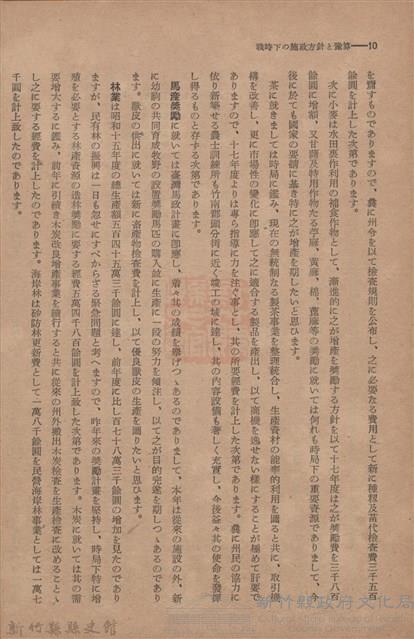 戰時下の施政方針と豫算――10
を齎すものでありますので、曩に州令を以て檢査規則を公布し、之に必要なる費用として新に種籾及苗代檢査費三千五百
餘圓を計上した次第であります。
次に小麥は水田裏作利用の補食作物として、漸進的に之が增產を奬勵する方針を以て十七年度は之が奬勵費を三千八百
餘圓に增額、又甘藷及特用作物たる苧麻、黃麻、棉、蓖麻等の奬勵に就いては何れも時局下の重要資源でありまして、今
後に於ても國家の要請に基き特に之が增產を期したいと思ひます。
茶に就きましては時局に鑑み、現在の無統制なる製茶事業を整理統合し、生產資材の能率的利用を圖ると共に、取引機
構を改善し、更に市場性の變化に卽應して之に適合する製品を產出し、以て商機を逸せない樣にすることが極めて肝要で
ありますので、十七年度よりは專ら指導に力を注ぐ事とし、其の所要經費を計上した次第であります。曩に州民の協力に
依り新築せる農士訓練所も竹南郡頭分街に近く竣工の域に達し、其の內容設備も著しく充實し、今後益々其の使命を發揮
し得るものと存する次第であります。
馬產奬勵に就いては臺灣馬政計畫に卽應し、着々其の成績を擧げつゝあるのでありまして、本年は從來の施設の外、新
に幼駒の共同育成牧野の設置奬勵馬匹の購入並に生產に一段の努力を傾注し、以て之が目的完遂を期しつゝあるのであり
ます。獸皮の供出に就いては新に畜產物檢査費を計上し、以て優良獸皮の生產を圖りたいと思ひます。
林業は昭和十五年度の總生產額五百四十五萬三千餘圓に達し、前年度に比し百七十八萬三千餘圓の增加を見たのであり
ますが、民有林の振興は一日も忽せにすべからざる緊急問題と考へますので、昨年來の奬勵計畫を堅持し、時局下特に增
殖を必要とする林產資源の造林奬勵に要する經費五萬四千八百餘圓を計上致した次第であります。木炭に就いては其の需
要增大するに鑑み、前年に引續き木炭改良增產事業を續行すると共に從來の州外搬出木炭檢査を生產檢査に改めることゝ
し之に要する經費を計上したのであります。海岸林は砂防林更新費として一萬八千餘圓を民營海岸林事業としては一萬七
千圓を計上致したのであります。
新竹縣政府文化局
新竹縣縣史館